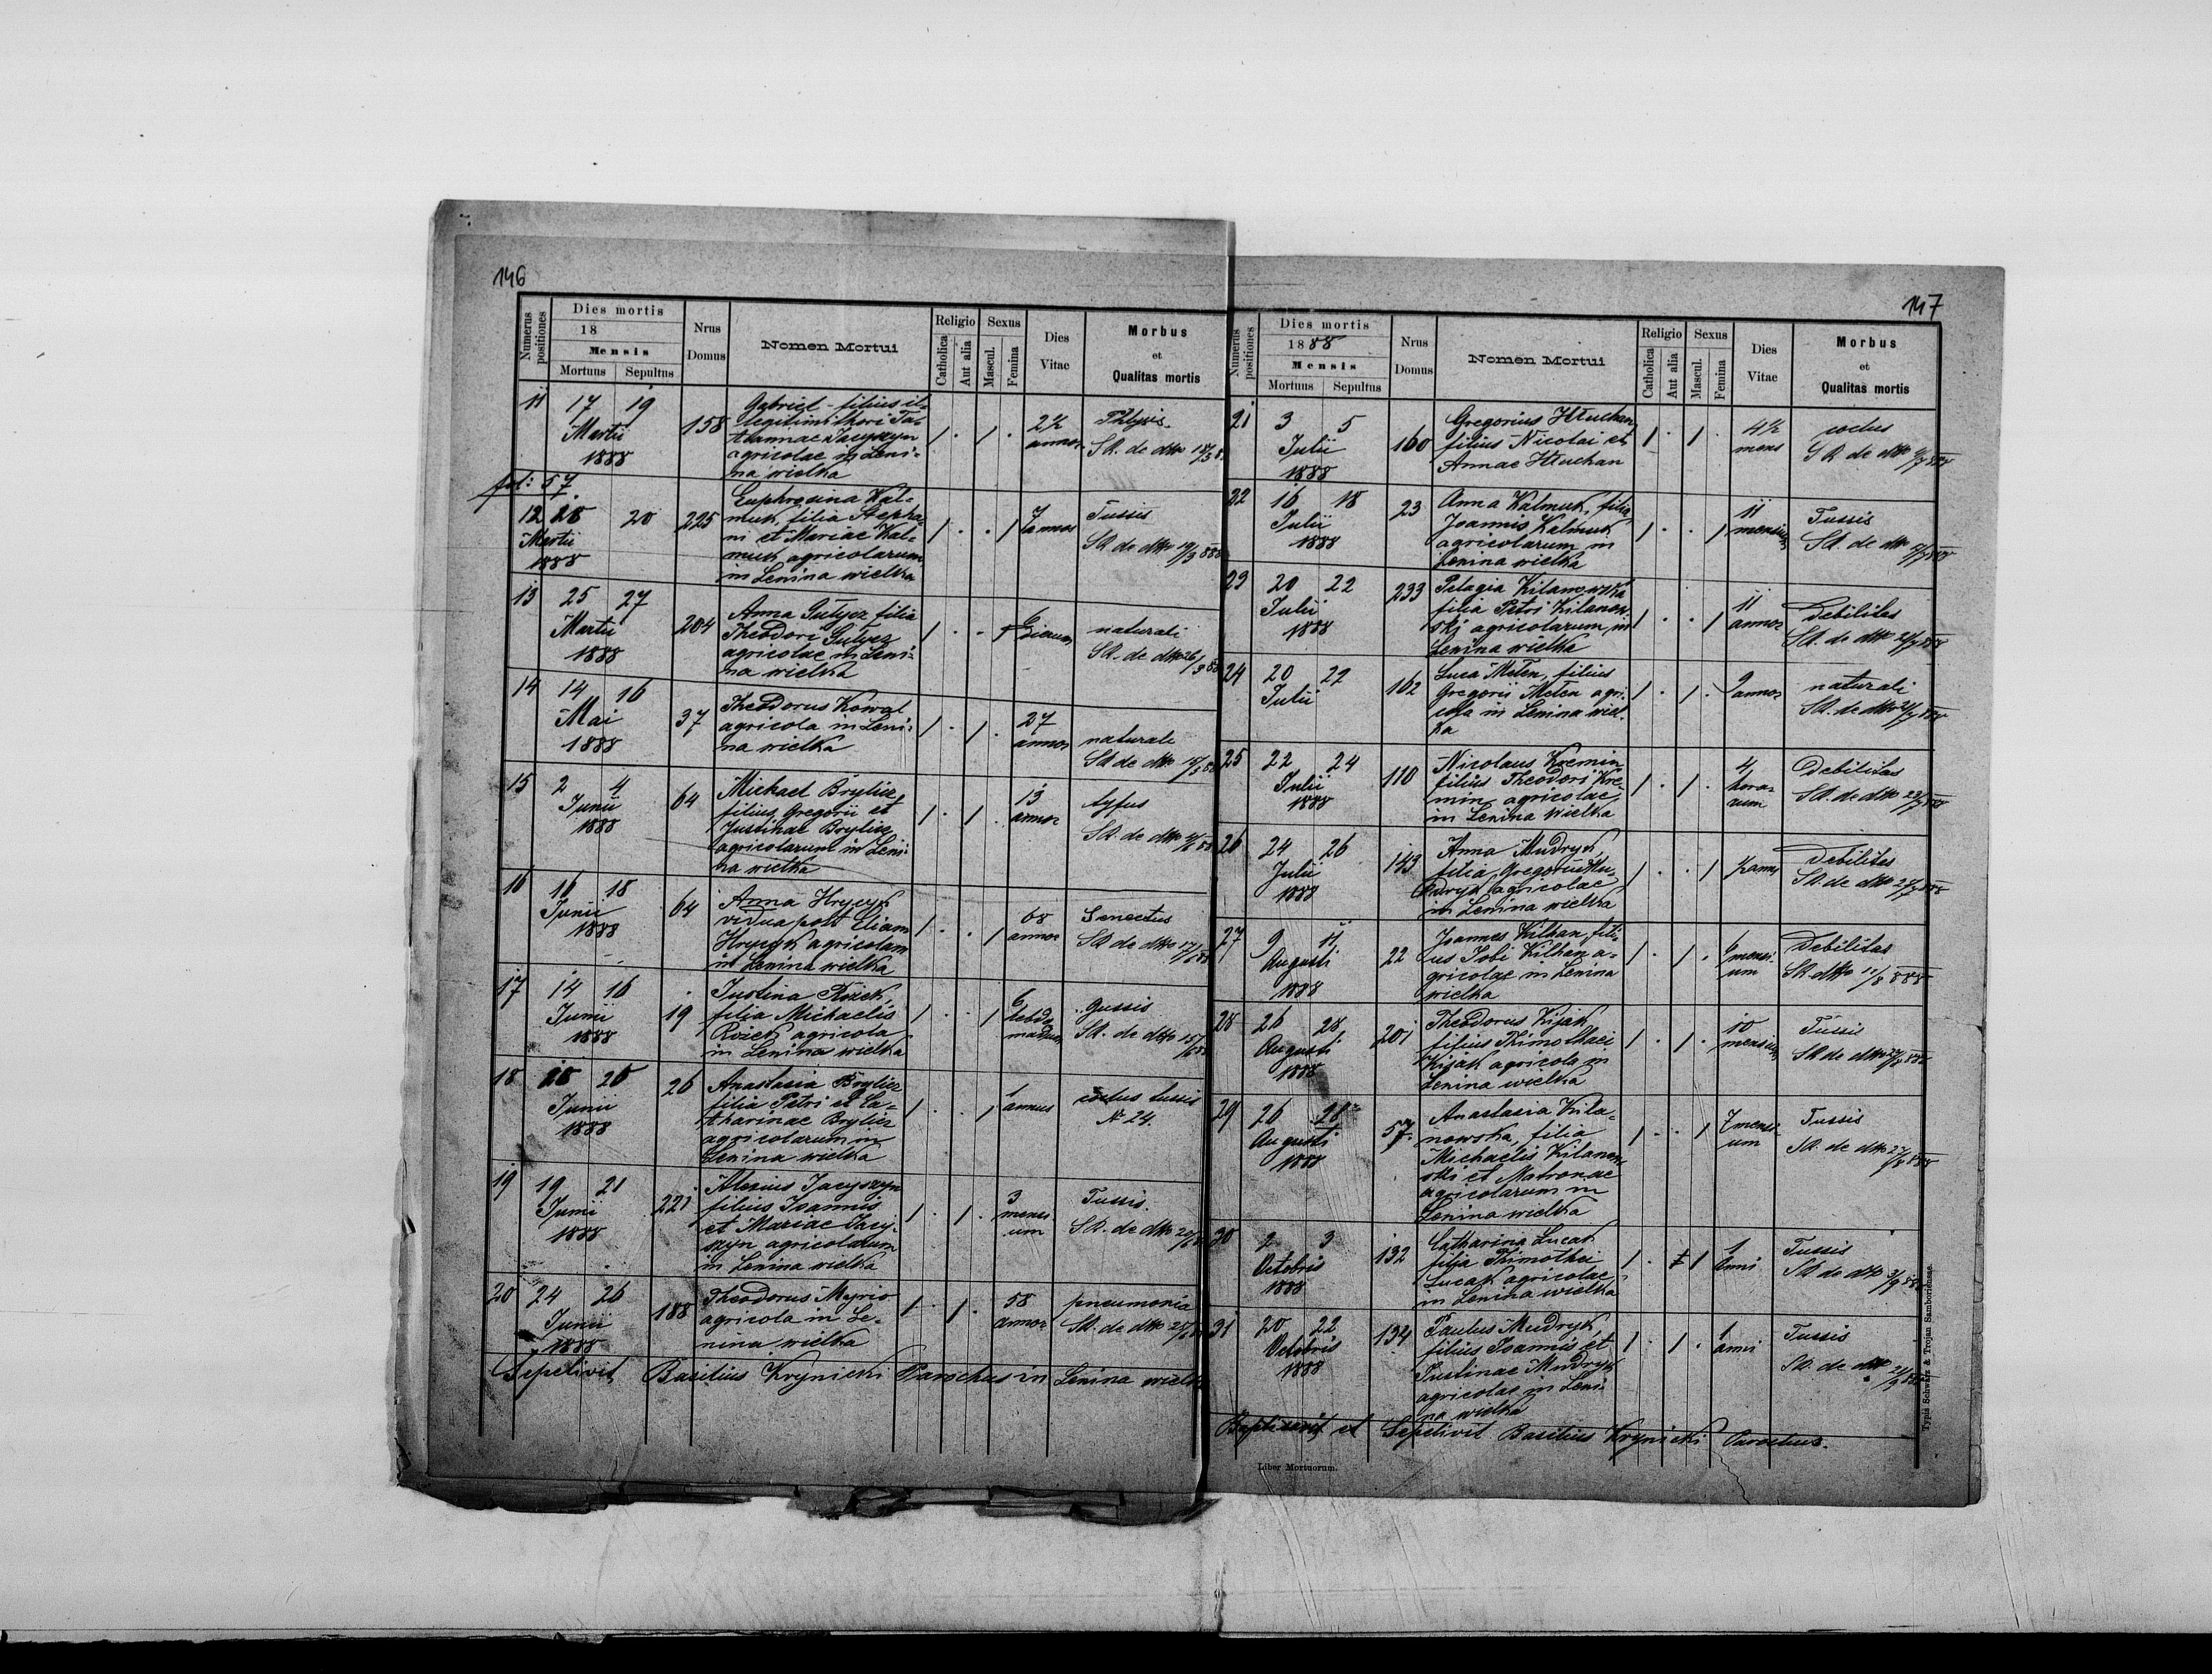 146
Numerus positiones
Dies mortis
18
Mensis
Mortuus Sepultus
Nrus Domus
Nomen Mortui
Religio
Catholica
Aut alia
Sexus
Mascul.
Femina
Dies Vitae
Morbus
et
Qualitas mortis
11 17 19
Martii
1888
158
Gabriel - filius il-
legitimi thori
Jacyszyn
agricolae in Leni-
na wielka
2½
annor
Phtysis
SR. de dtto
fol: 57.
12 20
Martii
1888
225
Euphrosina Kal-
muk, filia Stepha-
ni et Mariae Kal-
muk agricolarum
in Lenina wielka
7
annos
Tussis
SR. de dtto 19/3 888
13 25 27
Martii
1888
204
Anna Gutycz filia
Theodori Gutycz
agricolae in Leni-
na wielka
6
dierum
naturali
SR. de dtto 26/3 88
14 14 16
Mai
1888
37
Theodorus Kowal
agricola in Leni-
na wielka
27
annor
naturale
SR de dtto
15 2 4
Junii
1888
64
Michael Brylicz,
filius Gregorii et
Justinae Brylicz
agricolarum in Leni-
na wielka
13
annor
tyfus
SR. de dtto
16 16 18
Junii
1888
64
Anna Hrycyk
vidua post Eliam
Hrycyk agricolam
in Lenina wielka
68
annor
Senectus
SR de dtto 17/6 88
17 14 16
Junii
1888
19
Justina Rożek,
filia Michaelis
Rożek agricola
in Lenina wielka
6
hebdo
madum
SR. de dtto 15/6 88
18 26
Junii
1888
26
Anastasia Brylicz
filia Petri et Ca-
tharinae Brylicz
agricolarum in
Lenina wielka
1
annus
tussis
N. 24.
19 19 21
Junii
1888
221
Alexius Jacyszyn
filius Joannis
et Mariae Jacy-
szyn agricolarum
in Lenina wielka
3
mensi
um
Tussis.
SR. de dtto 20/6 88
20 24 26
Junii
1888
188
Theodorus Myrio
agricola in Le-
nina wielka
58
annor
pneumonia
SR. de dtto 25/6
Sepelivit Basilius Krynicki Parochus in Lenina wielka
147
Numerus positiones
Dies mortis
1888
Mensis
Mortuus Sepultus
Nrus Domus
Nomen Mortui
Religio
Catholica
Aut alia
Sexus
Mascul.
Femina
Dies Vitae
Morbus
et
Qualitas mortis
21 3 5
Julii
1888
160
Gregorius Hłuchan
filius Nicolai et
Annae Hłuchan
4½
mens
SR de dtto
22 16 18
Julii
1888
23
Anna Kalmuk, filia
Joannis Kalmuk
agricolarum in
Lenina wielka
11
mensium
Tussis
SR. de dtto 17/7 888
23 20 22
Julii
1888
233
Pelagia Kilanowska
filia Petri Kilanow-
skj agricolarum in
Lenina wielka
11
annor
Debilitas
SR. de dtto 21/7 888
24 20 22
Julii
162
Luca Meten, filius
Gregorii Meten agri-
cola in Lenina wiel-
ka
9
annor
naturali
SR. de dtto 21/7 888
25 22 24
Julii
1888
110
Nicolaus Kremin
filius Theodori Kre-
min agricolae
in Lenina wielka
4
hora-
rum
Debilitas
SR. de dtto 23/7 888
26 24 26
Julii
1888
143
Anna Mudryk,
filia Gregorii Mu-
dryk agricolae
in Lenina wielka
Debilitas
SR. de dtto 25/7 888
27 9 11
Augusti
1888
22
Joannes Kilhan, fili-
us Jobi Kilhan a-
gricolae in Lenina
wielka
6
mensi-
um
Debilitas
SR dtto 10/8 888
28 26 28
Augusti
1888
201
Theodorus Kijak
filius Thimothaei
Kijak agricola in
Lenina wielka
10
mensium
Tussis
SR de dtto 27/8 888
29 26 28
Augusti
1888
57.
Anastasia Kila-
nowska, filia
Michaelis Kilanow-
ski et Matronae
agricolarum in
Lenina wielka
7 mensi-
um
Tussis
SR. de dtto 27/8 888
30 2 3
Octobris
1888
132
Catharina Lucak
filia Thimothei
Lucak agricolae
in Lenina wielka
1
anni
Tussis
SR de dtto 3/9 88
31 20 22
Octobris
1888
134
Paulus Mudryk,
filius Joannis et
Justinae Mudryk
agricolae in Leni-
na wielka
1
anni
Tussis
SR. de dtto 21/9 888
Baptisavit et Sepelivit Basilius Krynicki Parochus.
Liber Mortuorum.
Typis Schwarz & Trojan Samboriensae.